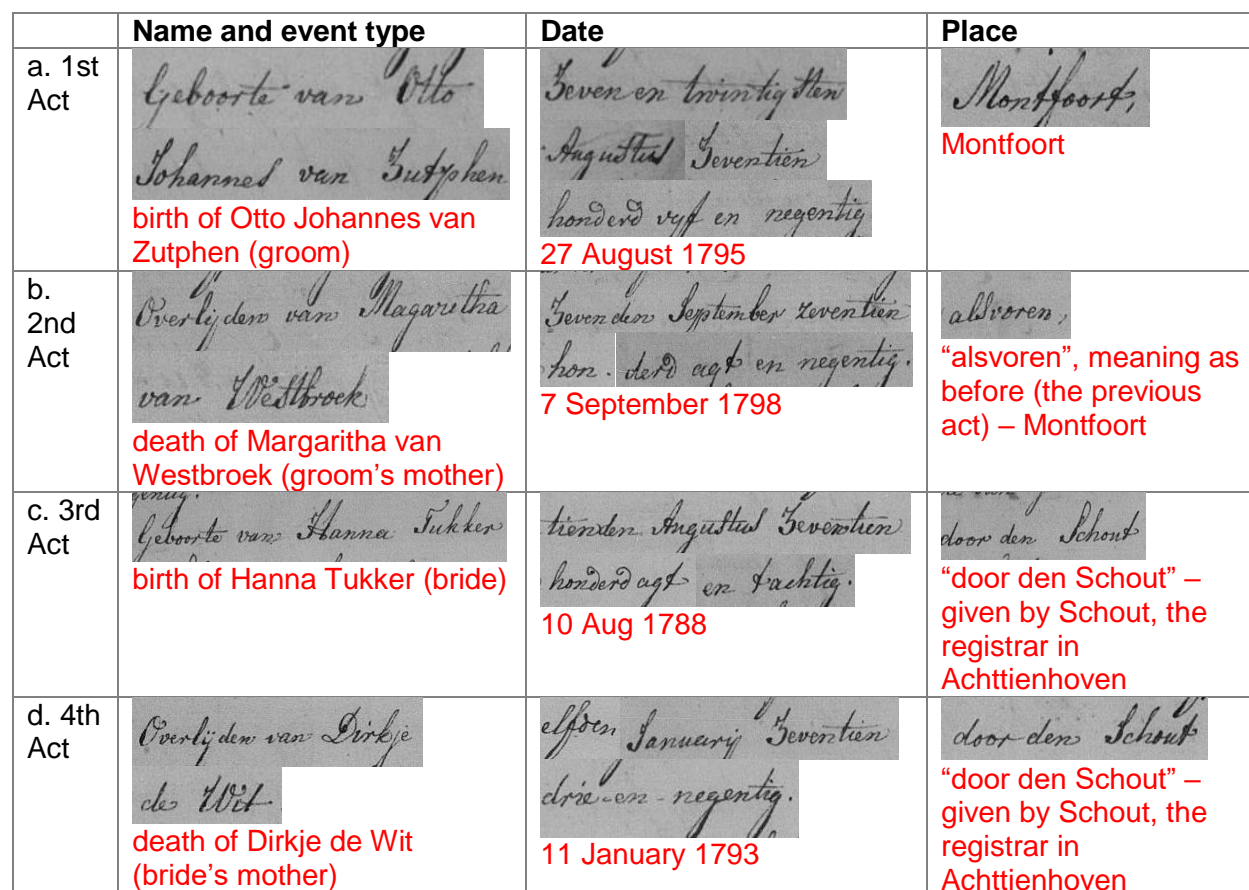 Name and event type Date Place
a. 1st Act
Geboorte van Otto
Johannes van Zutphen
birth of Otto Johannes van
Zutphen (groom)
Zeven en twintigsten
Augustus Zeventien
honderd vyf en negentig
27 August 1795
Montfoort,
Montfoort
b. 2nd Act
Overlijden van Magaretha
van Westbroek
death of Margaritha van
Westbroek (groom's mother)
Zevenden September zeventien
hon. derd agt en negentig.
7 September 1798
alsvoren,
“alsvoren”, meaning as
before (the previous
act) – Montfoort
c. 3rd Act
Geboorte van Hanna Tukker
birth of Hanna Tukker (bride)
tienden Augustus Zeventien
honderd agt en tachtig.
10 Aug 1788
door den Schout
“door den Schout” –
given by Schout, the
registrar in
Achttienhoven
d. 4th Act
Overlijden van Dirkje
de Wit
death of Dirkje de Wit
(bride's mother)
elfden Januarij Zeventien
drie-en-negentig.
11 January 1793
door den Schout
“door den Schout” –
given by Schout, the
registrar in
Achttienhoven